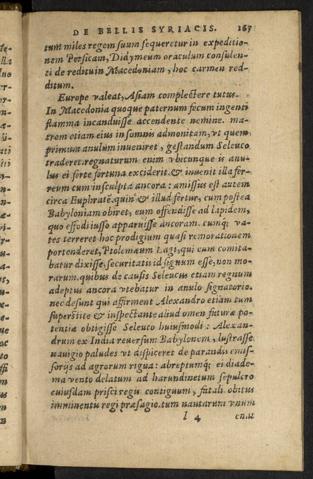 DE BELLIS SYRIACIS. 167
tum miles regem suum sequeretur in expeditio-
nem Persicam, Didymeum oraculum consulen-
ti de reditu in Macedoniam, hoc carmen red-
ditum.
Europe valeat, Asiam complectere tutus.
In Macedonia quoque paternum focum ingenti
flamma incanduisse accendente nemine. ma-
trem etiam eius in somnis admonitam, vt quem
primum anulum inueniret, gestandum Seleuco
traderet. regnaturum enim vbicunque is anu-
lus ei forte fortuna exciderit. & inuenit illa fer-
reum cum insculpta ancora: amissus est autem
circa Euphratē. quin & illud fertur, cum postea
Babyloniam obiret, eum offendisse ad lapidem,
quo effosso iusso apparuisse ancoram. cumq; va-
tes terreret hoc prodigium quasi remorationem
portenderet, Ptolemæum Lagi, qui cum comita-
batur dixisse, securitatis id signum esse, non mo-
rarum. quibus de caussis Seleucus etiam regnum
adeptus ancora vtebatur in anulo signatorio.
nec desunt qui affirment Alexandro etiam tum
superstite & inspectante aliud omen futuræ po-
tentiæ obtigisse Seleuco huiusmodi: Alexan-
drum ex India reuersum Babylonem, lustrasse
nauigio paludes vt dispiceret de parandis emis-
sorijs ad agrorum rigua: abreptumq; ei diade-
ma vento delatum ad harundinetum sepulcro
cuiusdam prisci regis contiguum, fatali obitus
imminentis regi præsagio. tum nautarum vnum
l 4